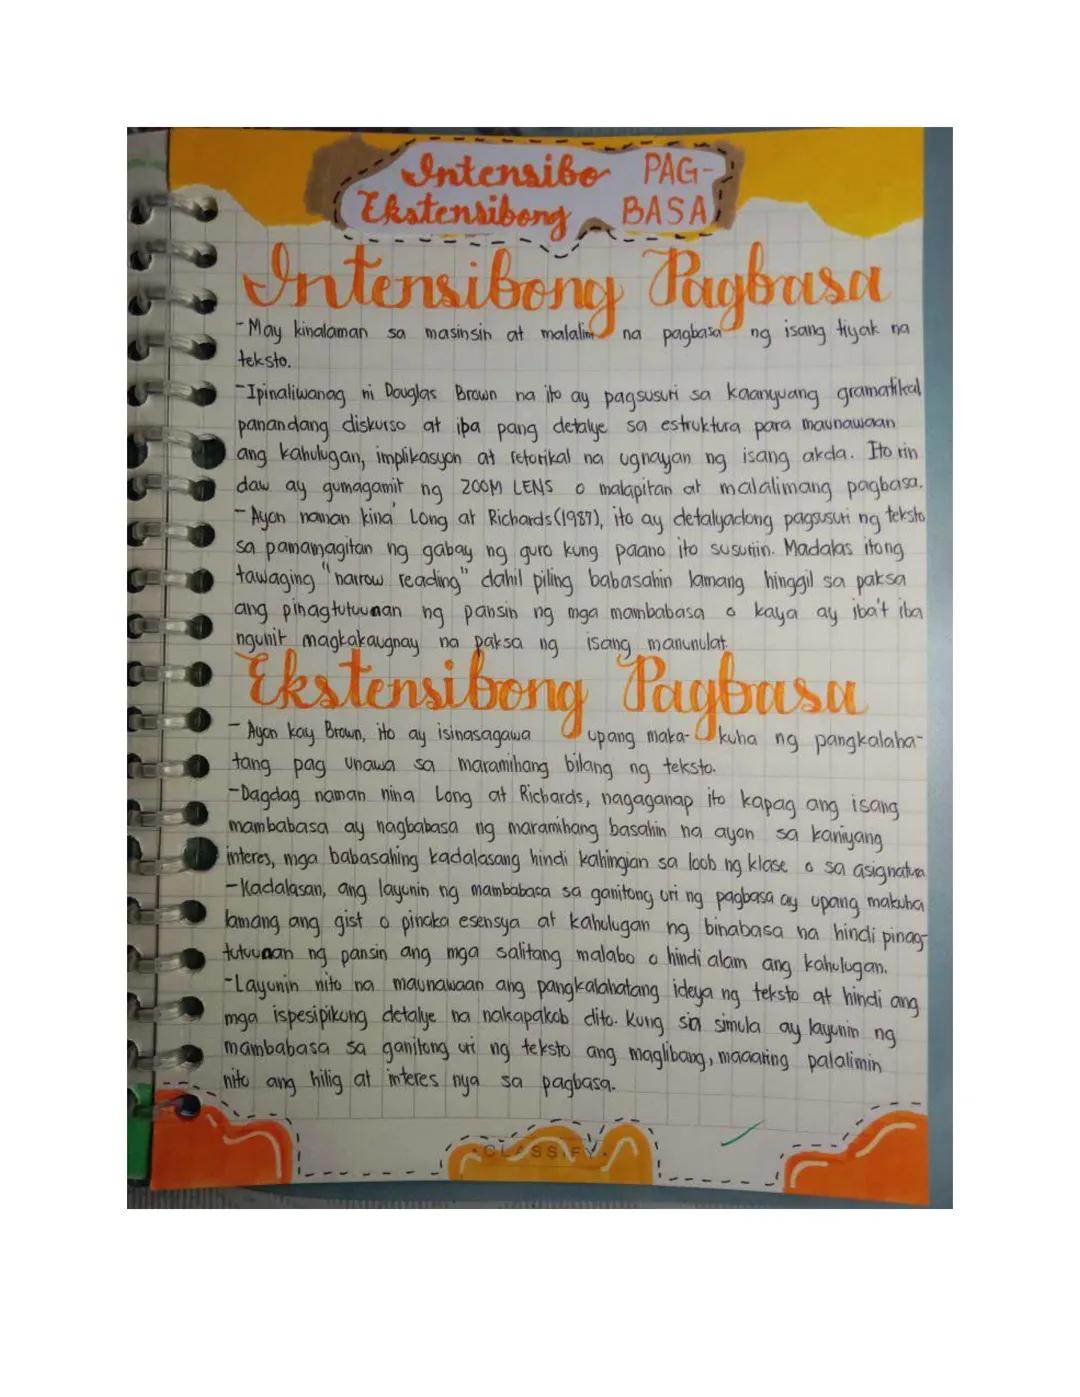 Intensibo PAG-
Ekstensibong BASA
Intensibong Pagbasa
-May kinalaman sa masinsin at malalim na pagbasa ng isang tiyak na
teksto.
-Ipinaliwanag ni Douglas Brown na ito ay pagsusuri sa kaanyuang gramatikal,
panandang diskurso at iba pang detalye sa estruktura para maunawaan
ang kahulugan, implikasyon at retorikal na ugnayan ng isang akda. Ito rin
daw ay gumagamit ng ZOOM LENS o malapitan at malalimang pagbasa.
-Ayon naman kina Long at Richards(1987), ito ay detalyadong pagsusuri ng teksto
sa pamamagitan ng gabay ng guro kung paano ito susuriin. Madalas itong
tawaging "narrow reading" dahil piling babasahin lamang hinggil sa paksa
ang pinagtutuunan ng pansin ng mga mambabasa o kaya ay iba't iba
ngunit magkakaugnay na paksa ng isang manunulat.
Ekstensibong Pagbasa
- Ayon kay Brown, ito ay isinasagawa upang maka-kuha ng pangkalaha-
tang pag unawa sa maramihang bilang ng teksto.
-Dagdag naman nina Long at Richards, nagaganap ito kapag ang isang
mambabasa ay nagbabasa ng maramihang basahin na ayon sa kaniyang
interes, mga babasahing kadalasang hindi kahingian sa loob ng klase o sa asignatura
-Kadalasan, ang layunin ng mambabasa sa ganitong uri ng pagbasa ay upang makuha
lamang ang gist o pinaka esensya at kahulugan ng binabasa na hindi pinag-
tutuunan ng pansin ang mga salitang malabo o hindi alam ang kahulugan.
-Layunin nito na maunawaan ang pangkalahatang ideya ng teksto at hindi ang
mga ispesipikong detalye na nakapakob dito. Kung sa simula ay layunin ng
mambabasa sa ganitong uri ng teksto ang maglibang, maaaring palalimin
nito ang hilig at interes nya sa pagbasa.
CLASSIFY